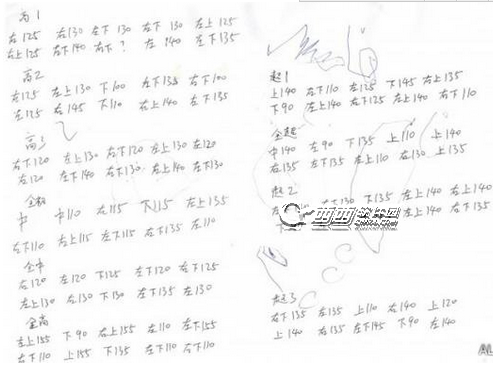 高1
右125 右130 左下130 右下130 左上125
右上125 右下140 右下? 左140 左下135
高2
右125 左上130 下100 左下135 右100
左125 右145 下110 右上140 左下135
高3
右下120 左上130 右下130 左上130 左120
右120 左下140 右下130 左上140 左下130
全初
中 中110 右115 下115 左上135
左下110 右上115 左下115 右下135 左110
全中
右120 左120 下125 左下120 右下125
左上130 左130 下130 左下135 左130
全高
左上155 下90 右上155 左110 左下155
右下110 上155 下135 左下110 右下110
超1
上140 右下110 左125 下145 右上135
下90 左上140 右下125 左上140 右下110
全超
中140 左90 下135 上110 上140
右135 左下135 左上110 右130 上135
超2
右下130 下135 左上140 右上140
左上140 右下135
西西软件园
超3
右下135 左135 上110 右140 上120
上140 右135 左下145 下90 左140
AL